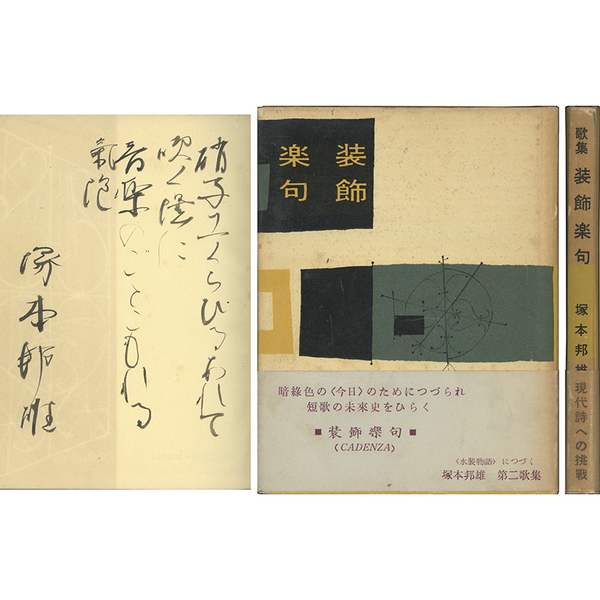 硝子工くちびるあれて
吹く壜に
音楽のごとこもれる
氣泡
塚本邦雄
装飾
楽句
暗綠色の〈今日〉のためにつづられ
短歌の未來史をひらく
■ 装飾樂句 ■
〈CADENZA〉
〈水葬物語〉につづく
塚本邦雄 第二歌集
歌集 装飾楽句 塚本邦雄
現代詩への挑戰